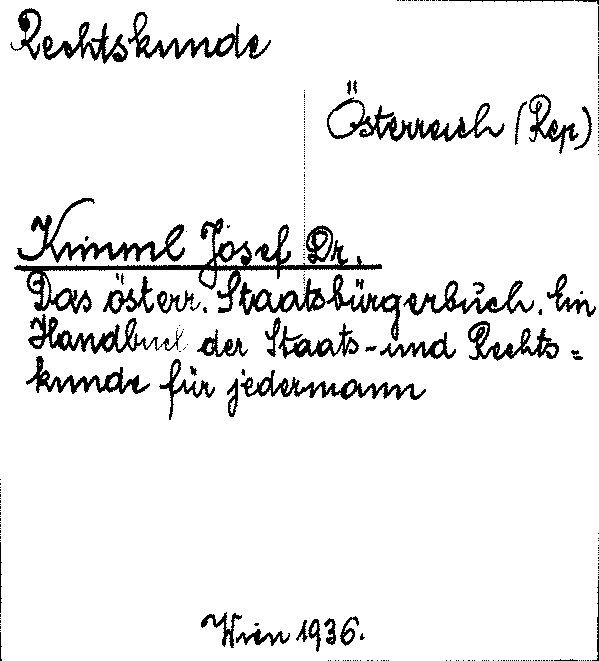 Rechtskunde
Österreich (Rep)
Kimml Josef Dr.
Das österr. Staatsbürgerbuch. Ein
Handbuch der Staats- und Rechts=
kunde für jedermann
Wien 1936.